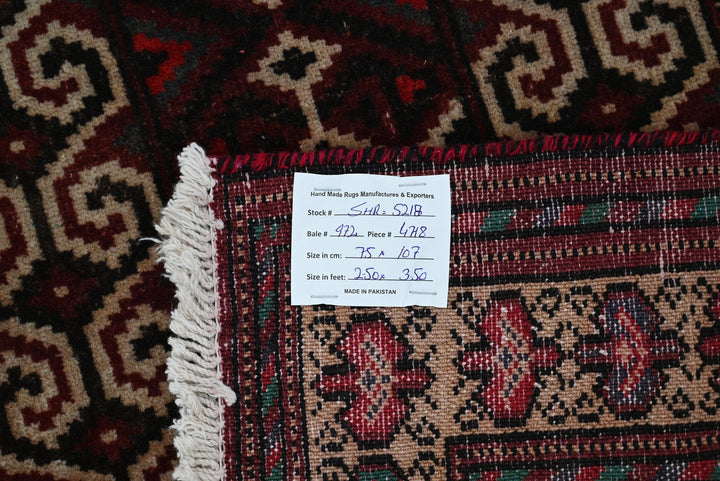 Hand Made Rugs Manufactures & Exporters
Stock # SHR=5218
Bale # 972 Piece # 4718
Size in cm: 75 x 107
Size in feet: 2.50 x 3.50
MADE IN PAKISTAN